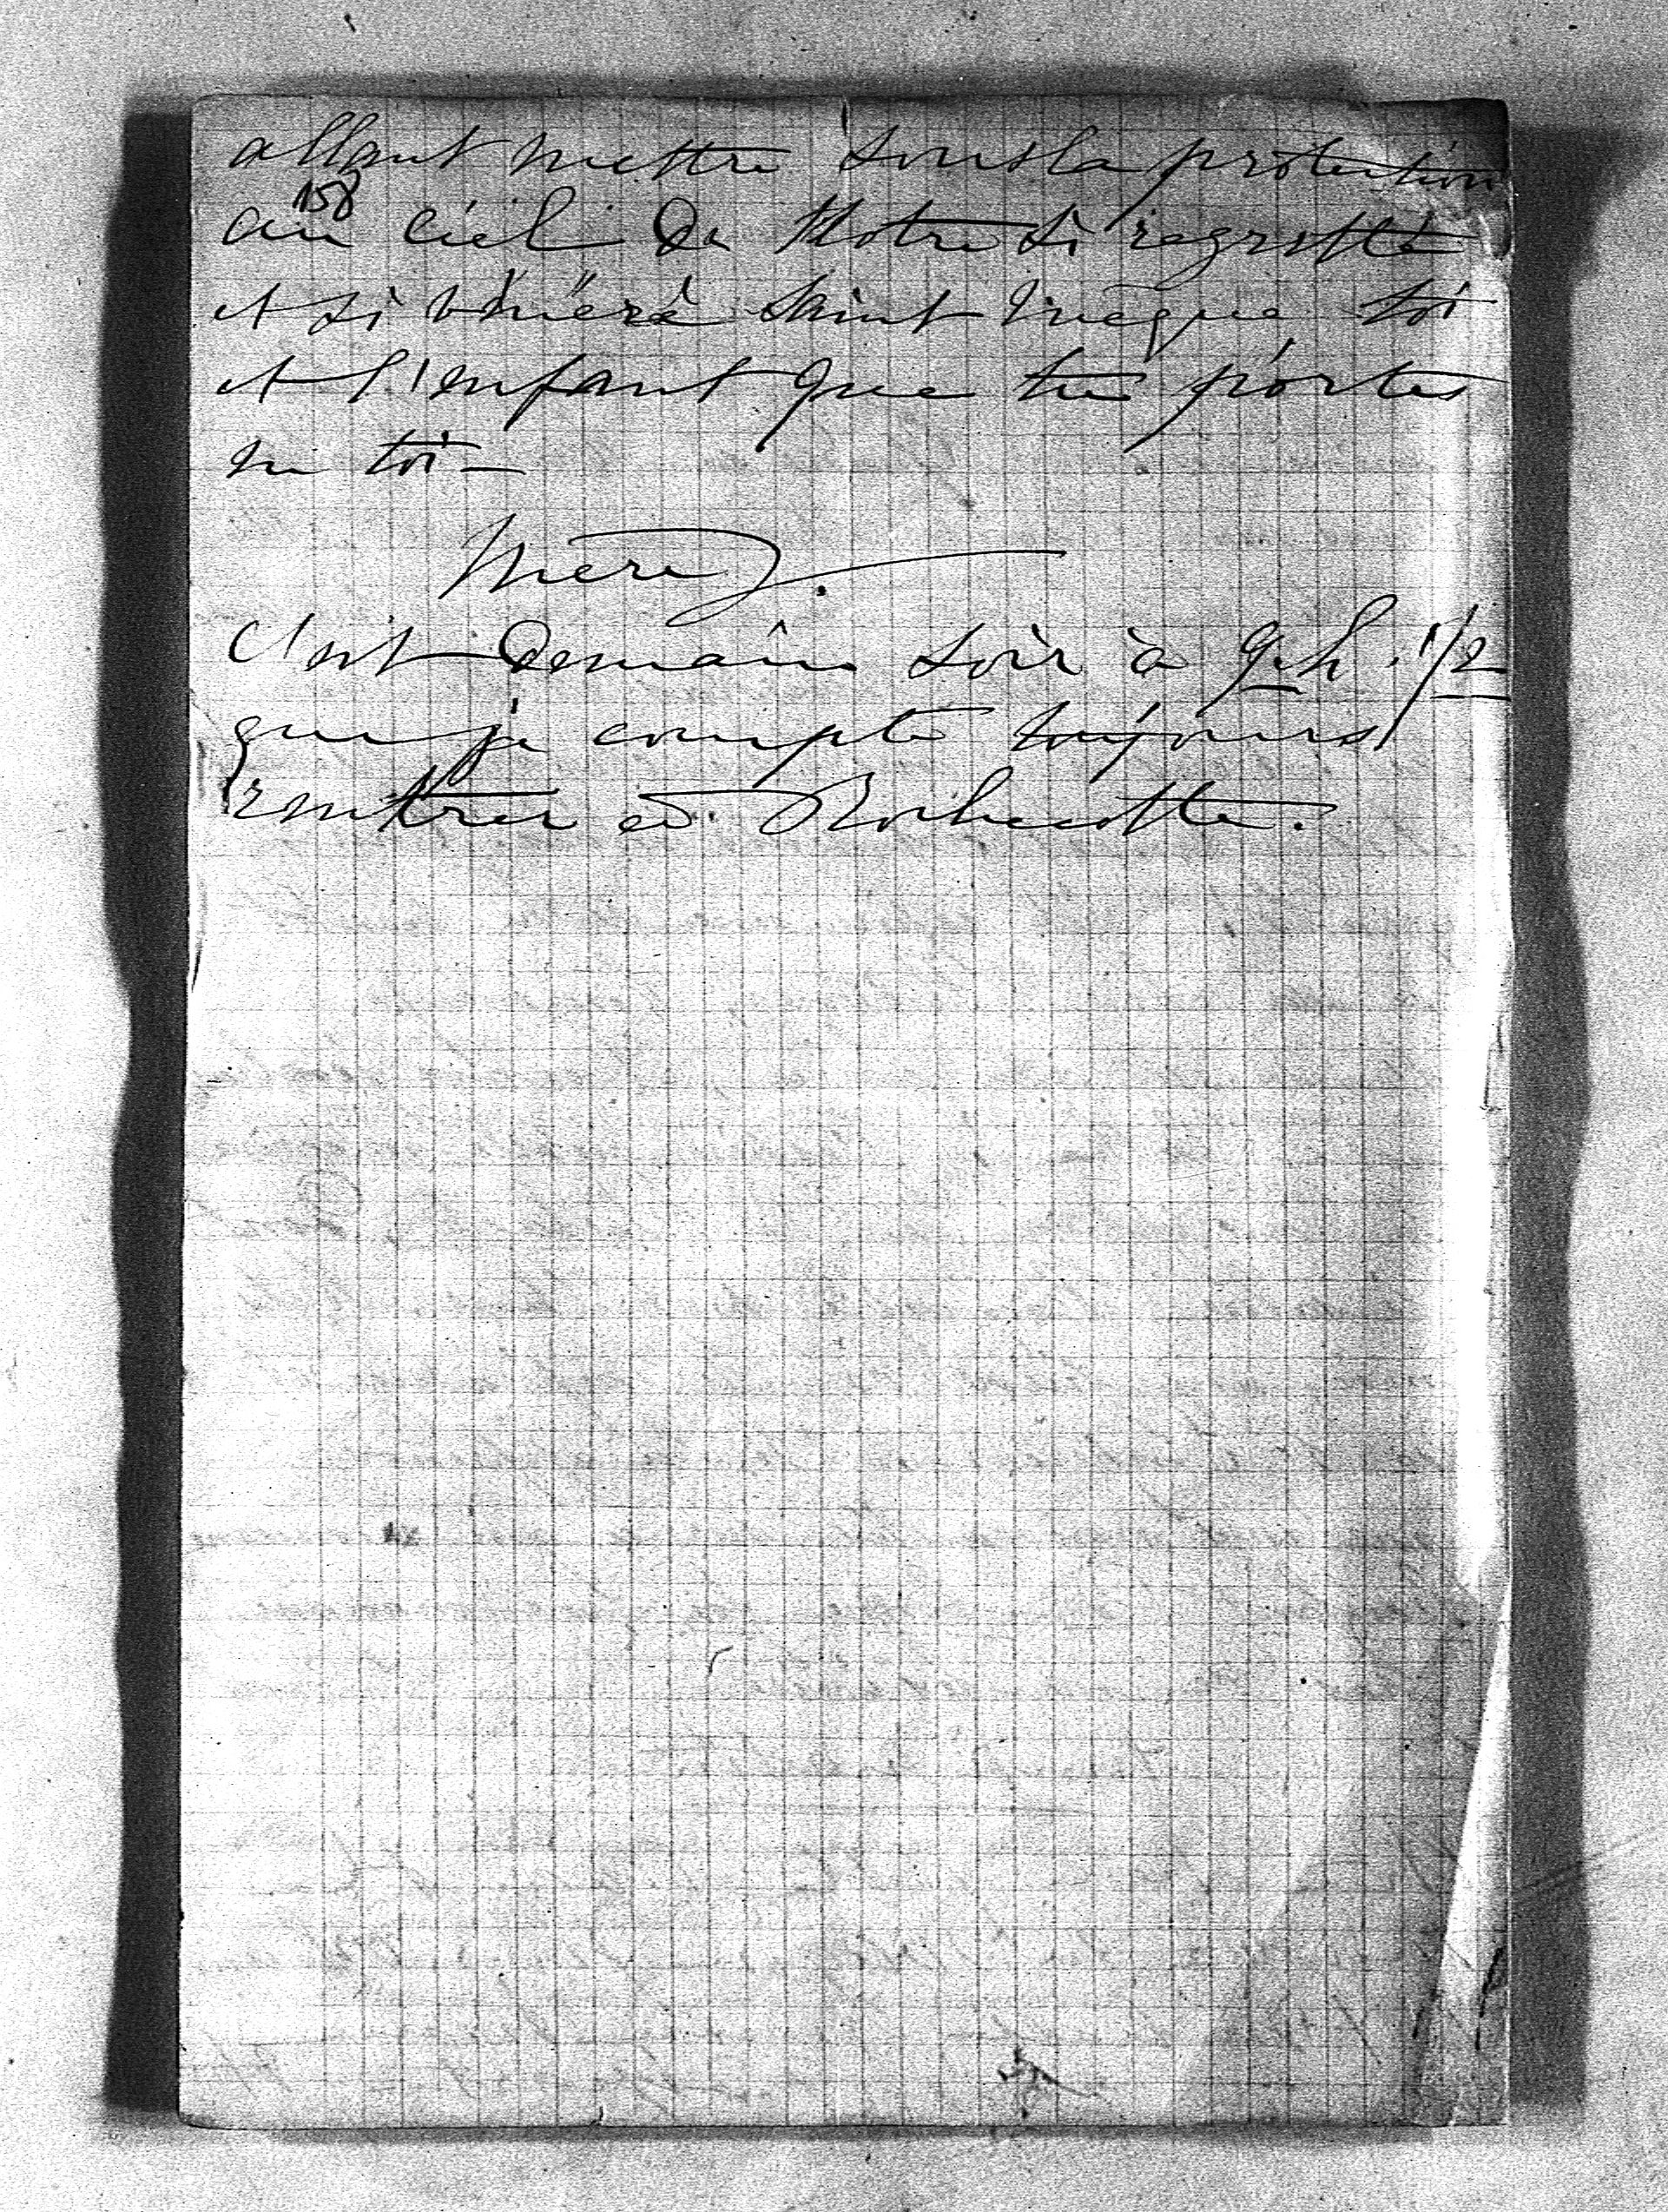 allant mettre sous la protection
158
au ciel de Notre si regretté
et si vénéré Saint Evêque toi
et l'enfant que tu portes
en toi —
Mère.
C'est demain soir à 9 h. 1/2
que je compte toujours
rentrer à Rochecotte.